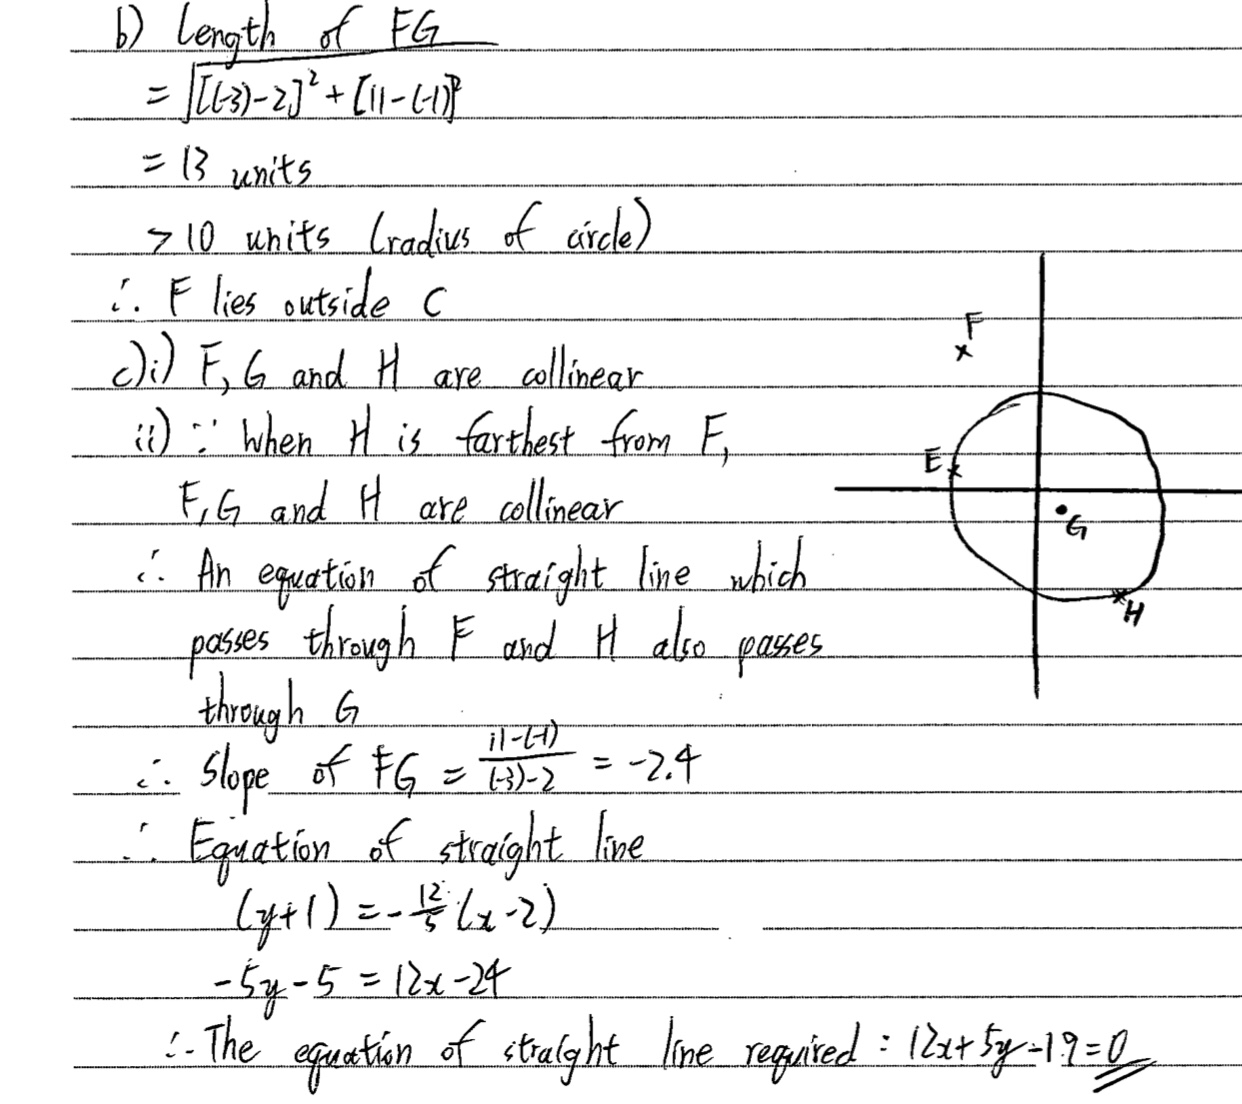 b) Length of FG
= √[(-3)-2]² + [11-(-1)]²
= 13 units
> 10 units (radius of circle)
∴ F lies outside C
c)i) F, G and H are collinear
ii) ∵ When H is farthest from F,
F, G and H are collinear
∴ An equation of straight line which
passes through F and H also passes
through G
∴ Slope of FG = 11-(-1) / (-3)-2 = -2.4
∴ Equation of straight line
(y+1) = -12/5 (x-2)
-5y-5 = 12x-24
∴ The equation of straight line required : 12x+5y-19=0
F
E
G
H